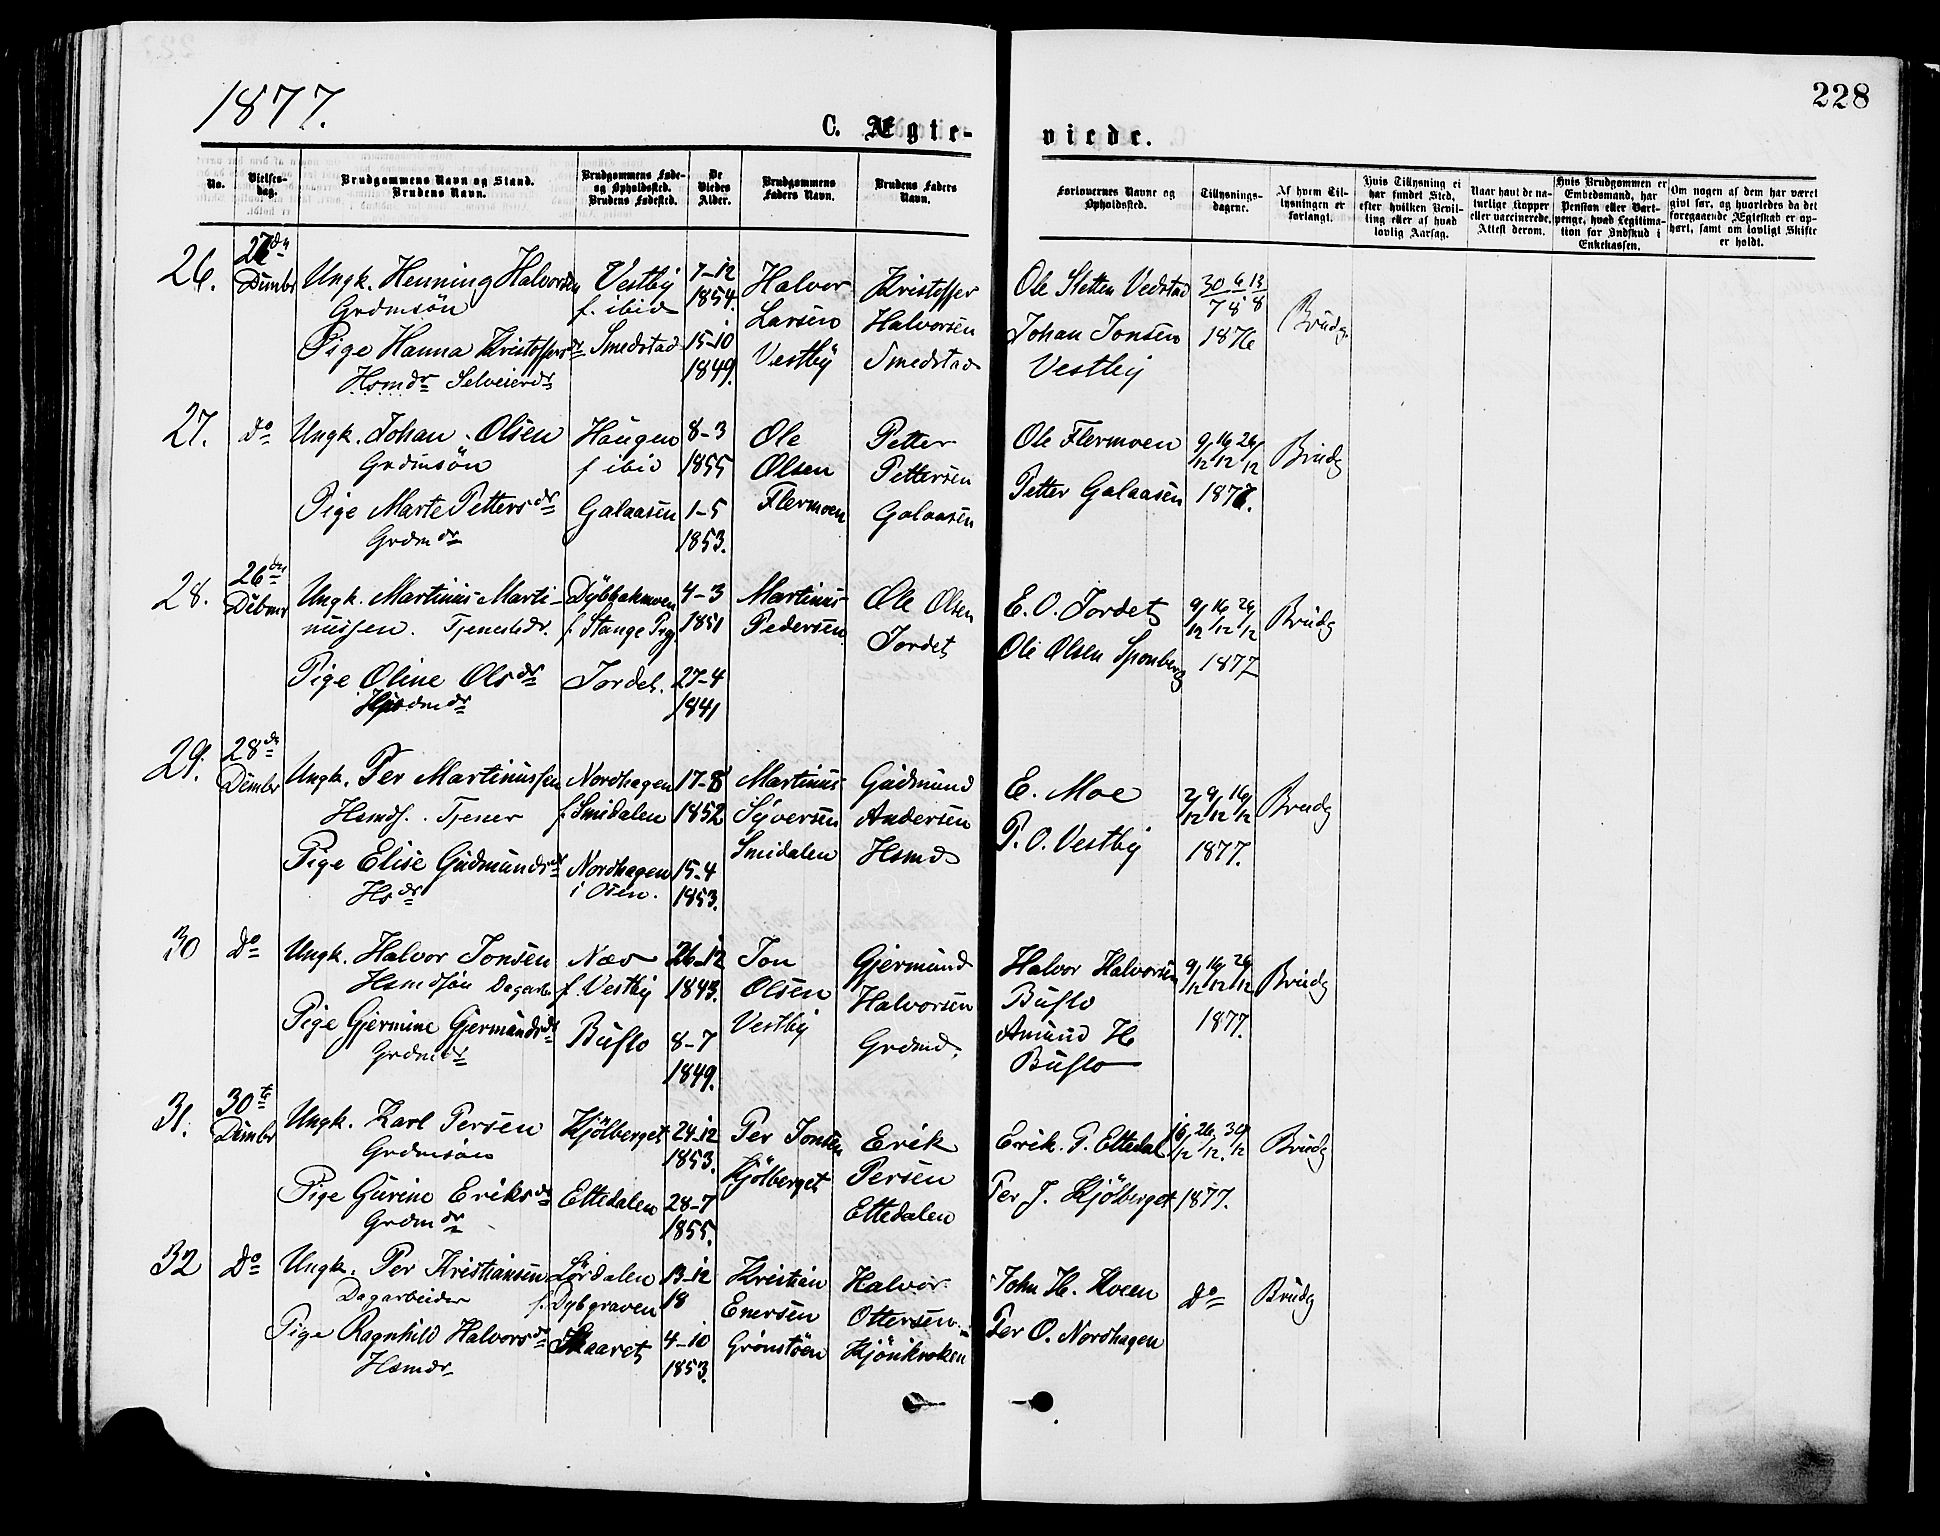 1877.
228
C. Ægte-
viede.
No.
Vielses-
dag.
Brudgommens Navn og Stand.
Brudens Navn.
Brudgommens Føde-
og Opholdssted.
Brudens Fødested.
De
Viedes
Alder.
Brudgommens
Faders Navn.
Brudens Faders
Navn.
Forlovernes Navne og
Opholdssted.
Tillysnings-
dagene.
Af hvem Til-
lysningen er
forlangt.
Hvis Tillysning ei
har fundet Sted,
efter hvilken Bevil-
ling eller af hvad
lovlig Aarsag.
Naar havt de na-
turlige Kopper
eller vaccinerede.
Attest derom.
Hvis Brudgommen er
Embedsmand, har
Pension eller Vart-
penge, hvad Legitima-
tion for Indskud i
Enkekassen.
Om nogen af dem har været
givt før, og hvorledes da det
foregaaende Ægteskab er op-
hørt, samt om lovligt Skifte
er holdt.
26.
Dcmbr
Ungk. Henning Halvorsen
Grdmsøn
Vestby
f. ibid
7-12
1854.
Halvor
Larsen
Vestby
Kristoffer
Halvorsen
Smedstad
Ole Sletten Vedstad
Johan Jonsen
Vestby
30/7 6/8 13/8
1876
Brudg.
Pige Hanna Kristoffersdr
Hsmdr Selveierdr
Smedstad
15-10
1849.
27.
do
Ungk. Johan Olsen
Grdmsøn
Haugen
f. ibid
8-3
1855
Ole
Olsen
Flermoen
Petter
Pettersen
Galaasen
Ole Flermoen
Petter Galaasen
9/12 16/12 26/12
1877.
Brudg
Pige Marte Pettersdr
Grdmdr
Galaasen
1-5
1853.
28.
26de
Dcbmr
Ungk. Martinus Marti-
nussen. Tjenestedr.
f. Stange Prg.
4-3
1851
Martinus
Pedersen
Ole Olsen
Jordet
E. O. Jordet
Ole Olsen Sponberg
9/12 16/12 26/12
1877
Brudg
Pige Oline Olsdr
Jordet.
27-4
1841
29.
28de
Dcmbr
Ungk. Per Martinussen
Hsmds. Tjener
Nordhagen
f. Smidalen
17-8
1852
Martinus
Syversen
Smidalen
Gudmund
Andersen
Hsmd
E. Moe
P. O. Vestby
2/12 9/12 16/12
1877.
Brudg
Pige Elise Gudmundsdr
Hsdr
Nordhagen
i Osen.
15-4
1853.
30
Do
Ungk. Halvor Jonsen
Hsmdsøn Dagarb.
Næv
f. Vestby
26-12
1843.
Jon
Olsen
Vestby
Gjermund
Halvorsen
Grdmd.
Halvor Halvorsen
Buflo
Amund H
Buflo
9/12 16/12 26/12
1877.
Brudg
Pige Gjermine Gjermundsdr
Grdmdr
Buflo
8-7
1849.
31.
30te
Dcmbr
Ungk. Karl Persen
Grdmsøn
Kjölberget
24-12
1853.
Per Jonsen
Kjölberget
Erik
Persen
Ettedalen
Erik. P. Ettedal
Per J. Kjölberget
16/12 26/12. 30/12
1877.
Brudg
Pige Gurine Eriksdr
Grdmdr
Ettedalen
28-7
1855.
32
Do
Ungk. Per Kristiansen
Dagarbeider
Lördalen
f. Dybgraven
13-12
18
Kristian
Enersen
Grönstöen
Halvor
Ottersen
Kjönkroken
John H. Moen
Per O. Nordhagen
Do
Brudg
Pige Ragnhild Halvorsdr
Hsmdr
Skaaret
4-10
1853.